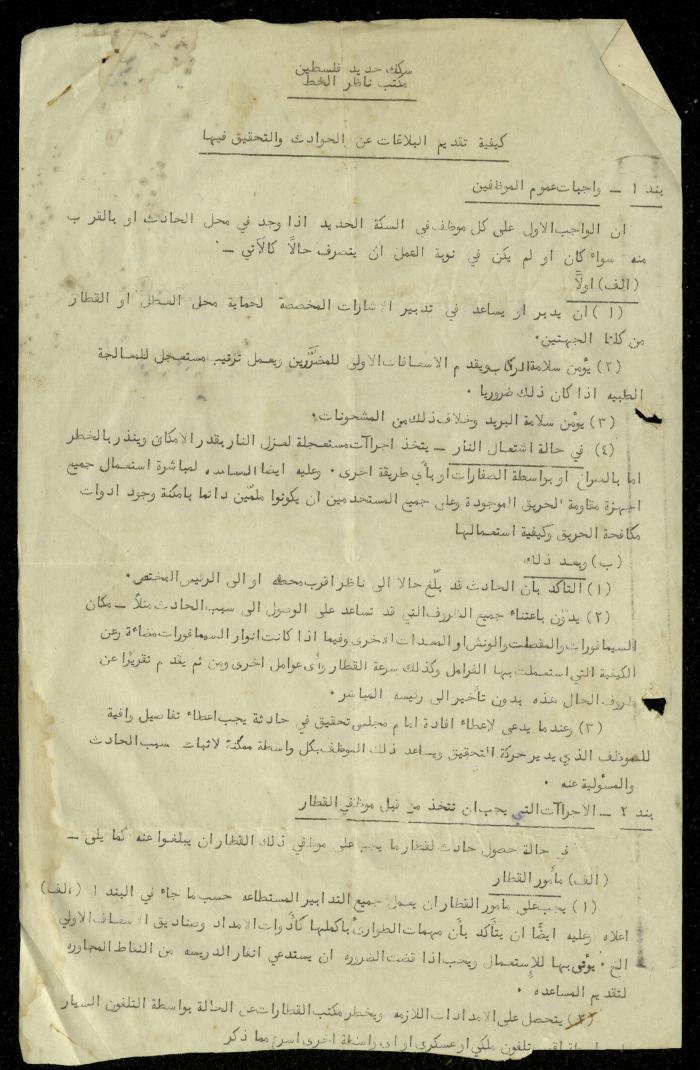 سكك حديد فلسطين
مكتب ناظر الخط
كيفية تقديم البلاغات عن الحوادث والتحقيق فيها
بند ١ ــ واجبات عموم الموظفين
ان الواجب الاول على كل موظف في السكة الحديد اذا وجد في محل الحادث او بالقرب
منه سواء كان او لم يكن في نوبة العمل ان يتصرف حالاً كالآتي ــ
(الف) اولاً
(١) ان يدبر او يساعد في تدبير الاشارات المخصصة لحماية محل العطل او القطار
من كلتا الجهتين.
(٢) يؤمن سلامة الركاب ويقدم الاسعافات الاولى للمضرَّرين ويعمل ترتيب مستعجل للمعالجة
الطبيه اذا كان ذلك ضروريا .
(٣) يؤمن سلامة البريد وخلاف ذلك من المشحونات.
(٤) في حالة اشتعال النار ــ يتخذ اجراآت مستعجلة لعزل النار بقدر الامكان وينذر بالخطر
اما بالصراخ او بواسطة الصفارات او بأي طريقة اخرى . وعليه ايضا المساعده لمباشرة استعمال جميع
اجهزة مقاومة الحريق الموجودة وعلى جميع المستخدمين ان يكونوا ملمّين دائما بامكنة وجود ادوات
مكافحة الحريق وكيفية استعمالها
(ب) وبعد ذلك
(١) التأكد بأن الحادث قد بلّغ حالا الى ناظر اقرب محطه او الى الرئيس المختص.
(٢) يدوّن باعتناء جميع الظروف التي قد تساعد على الوصول الى سبب الحادث مثلاً ــ مكان
السيمافورات والمقصات والونش او المعدات الاخرى وفيما اذا كانت انوار السيمافورات مضاءة وعن
الكيفية التي استعملت بها الفرامل وكذلك سرعة القطار وأى عوامل اخرى ومن ثم يقدم تقريرًا عن
ظروف الحال هذه بدون تأخير الى رئيسه المباشر .
(٣) وعندما يدعى لاعطاء افادة امام مجلس تحقيق في حادثة يجب اعطاء تفاصيل وافية
للموظف الذي يدير حركة التحقيق ويساعد ذلك الموظف بكل واسطة ممكنة لاثبات سبب الحادث
والمسئولية عنه .
بند ٢ ــ الاجراآت التي يجب ان تتخذ من قبل موظفي القطار
في حالة حصول حادث لقطار ما يجب على موظفي ذلك القطار ان يبلغوا عنه كما يلى ــ
(الف) مأمور القطار
(١) يجب على مأمور القطار ان يعمل جميع التدابير المستطاعه حسب ما جاء في البند ١ (الف)
اعلاه وعليه ايضًا ان يتأكد بأن مهمات الطوارئ باكملها كأدوات الامداد وصناديق الاسعاف الاولي
الخ . يؤتى بها للإستعمال ويجب اذا قضت الضروره ان يستدعي انفار الدريسه من النقاط المجاوره
لتقديم المساعده .
(٢) يتحصل على الامدادات اللازمه ويخطر مكتب القطارات عن الحالة بواسطة التلفون السيار
تلفون ملكي او عسكري او اى واسطة اخرى اسرع مما ذكر